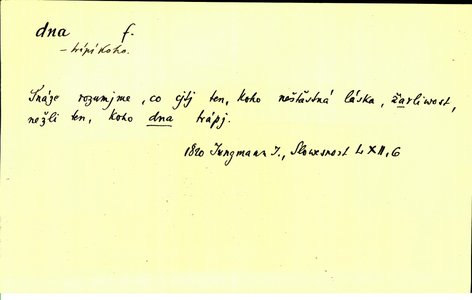 dna f.
– trápí koho.
Snáze rozumjme, co cjtj ten, koho nešťastná láska, žarliwost,
nežli ten, koho dna trápj.
1820 Jungmann J., Slowesnost LXII, 6